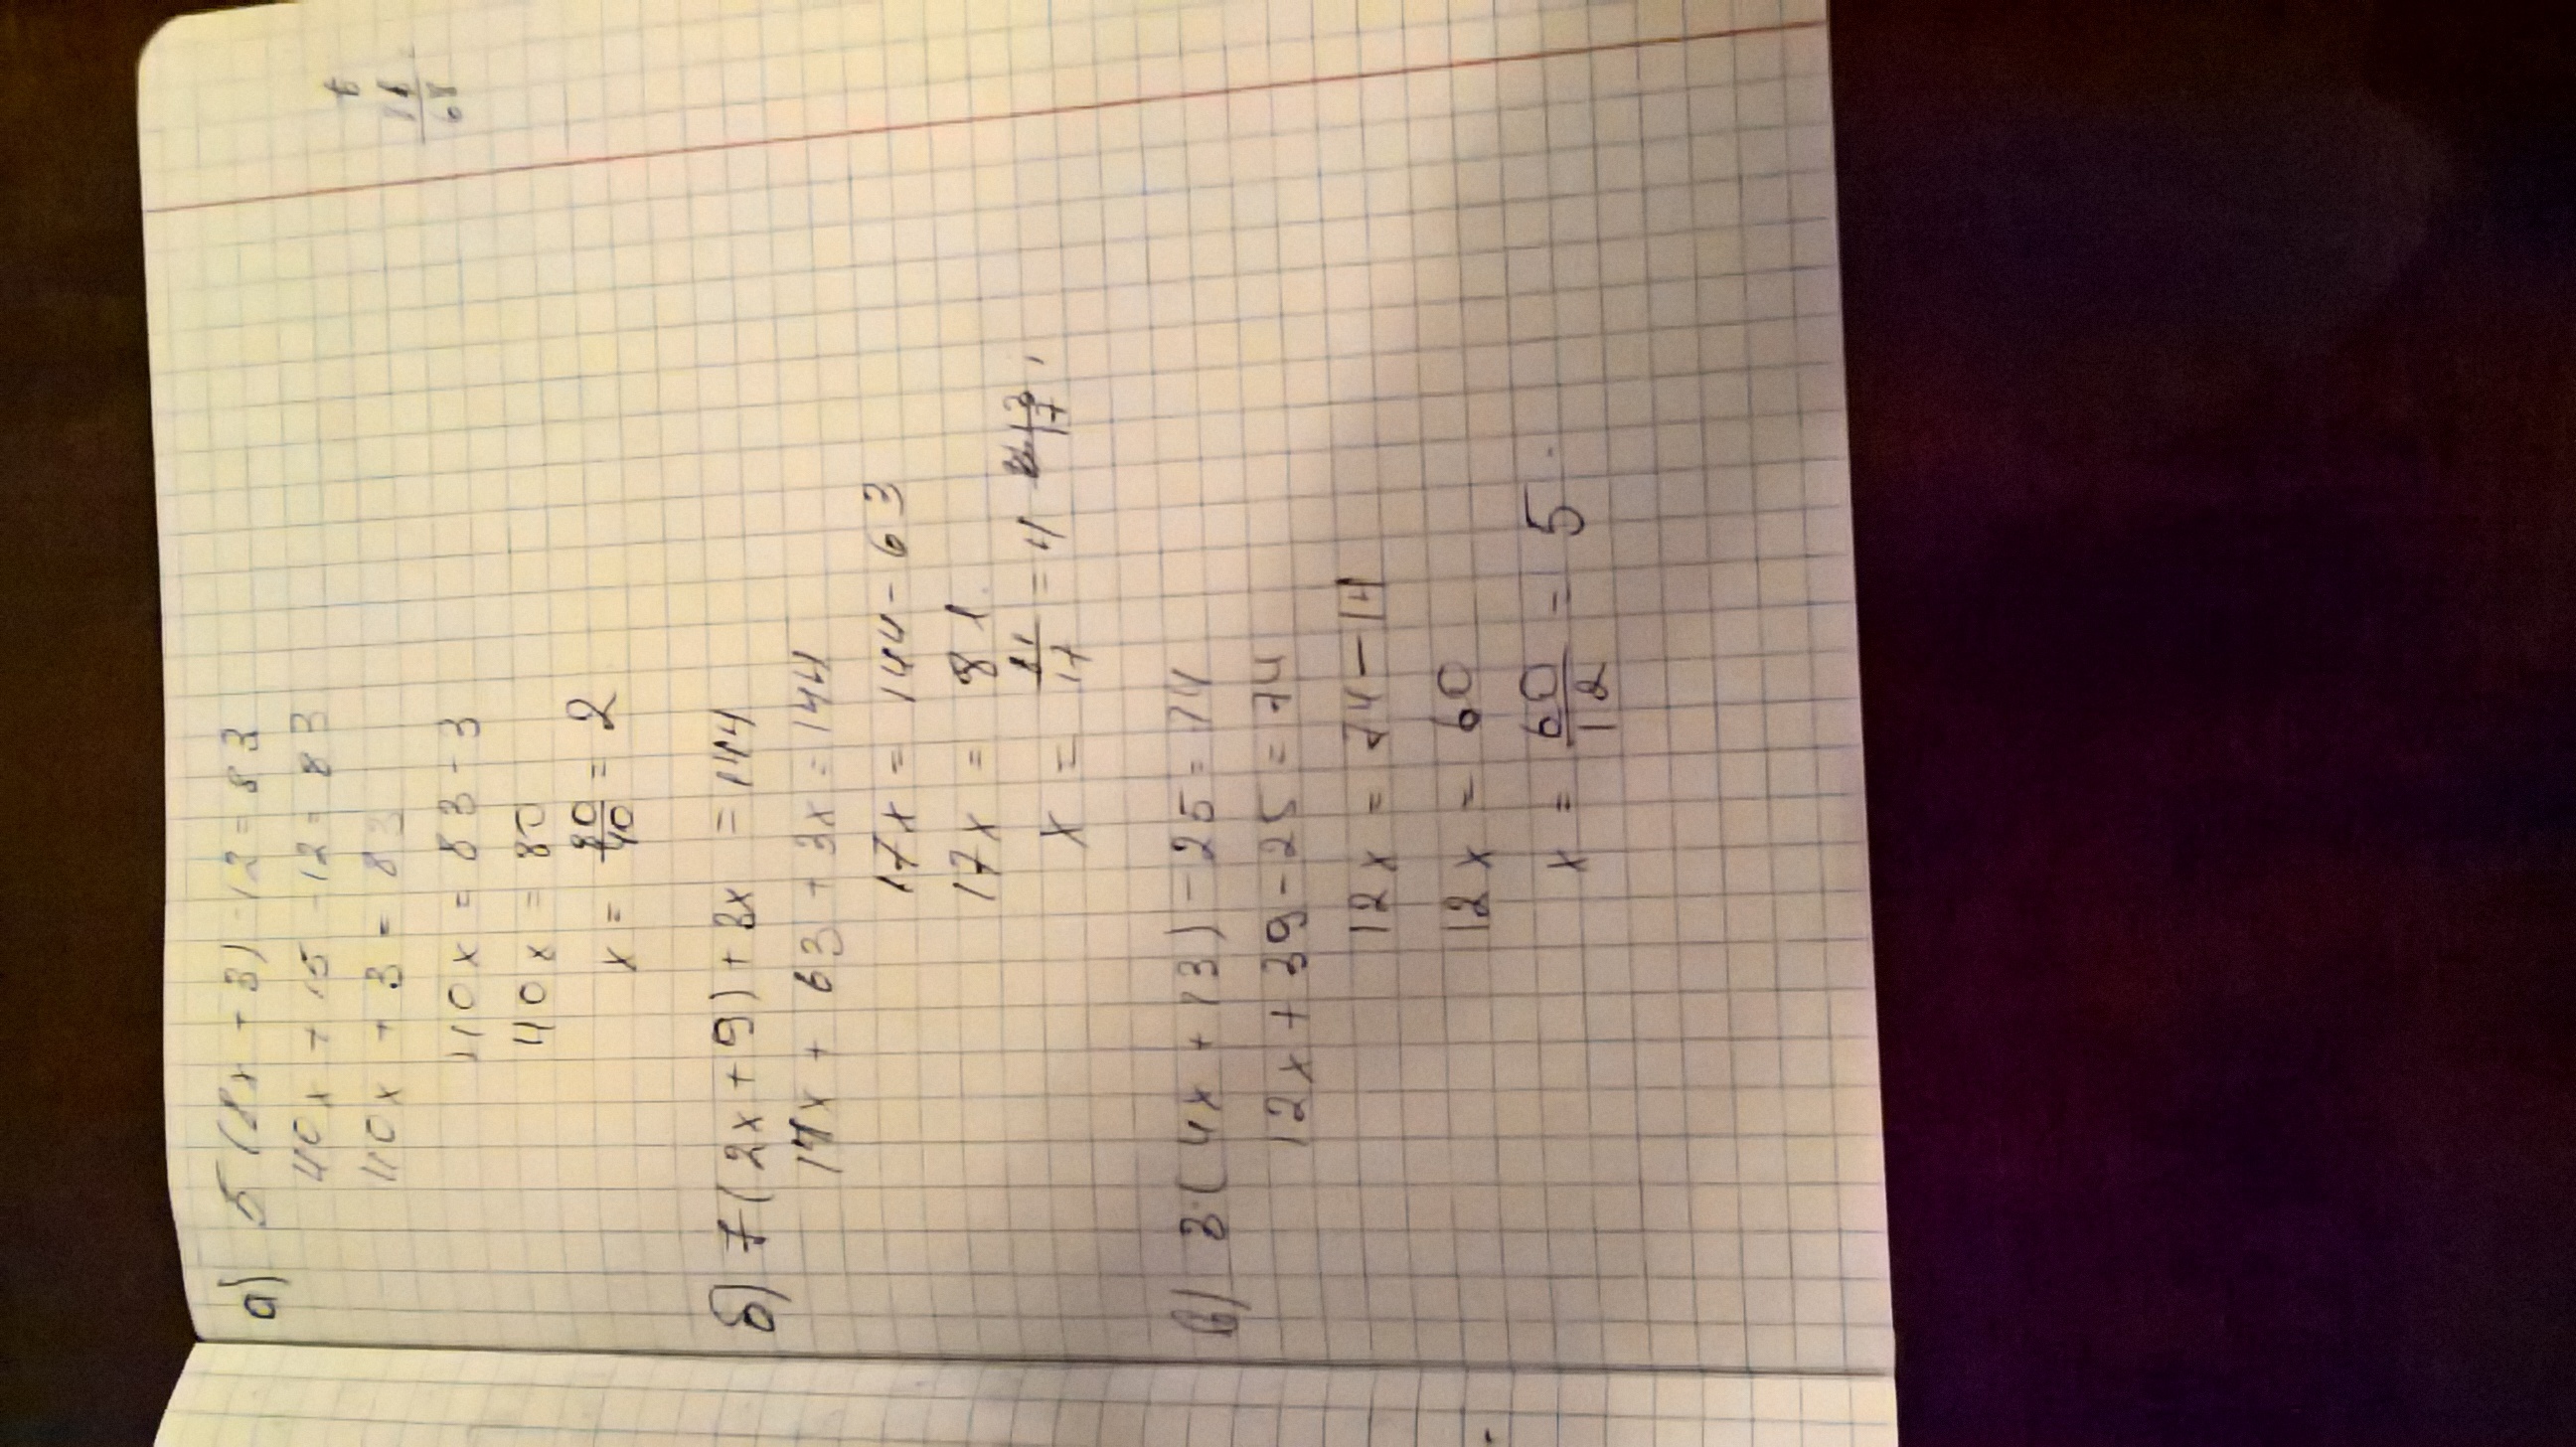 а) 5(8x+3)-12=83
40x+15-12=83
40x+3=83
40x=83-3
40x=80
x=80/40=2
б) 7(2x+9)+3x=144
14x+63+3x=144
17x=144-63
17x=81
x=81/17=4 13/17
в) 3(4x+13)-25=74
12x+39-25=74
12x=74-14
12x=60
x=60/12=5.